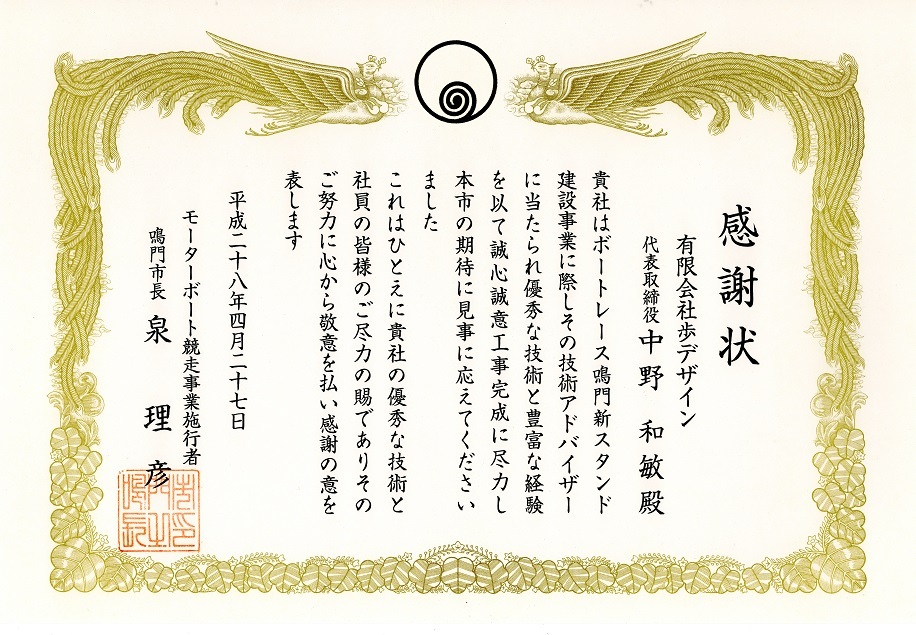 感謝状
有限会社歩デザイン
代表取締役 中野 和敏 殿
貴社はボートレース鳴門新スタンド
建設事業に際しその技術アドバイザー
に当たられ優秀な技術と豊富な経験
を以て誠心誠意工事完成に尽力し
本市の期待に見事に応えてください
ました
これはひとえに貴社の優秀な技術と
社員の皆様のご尽力の賜でありその
ご努力に心から敬意を払い感謝の意を
表します
平成二十八年四月二十七日
モーターボート競走事業施行者
鳴門市長 泉 理彦